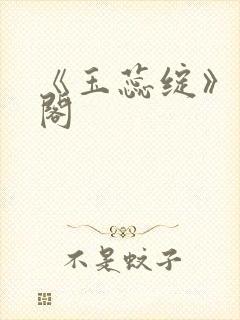 《玉蕊绽》
閣
不是蚊子